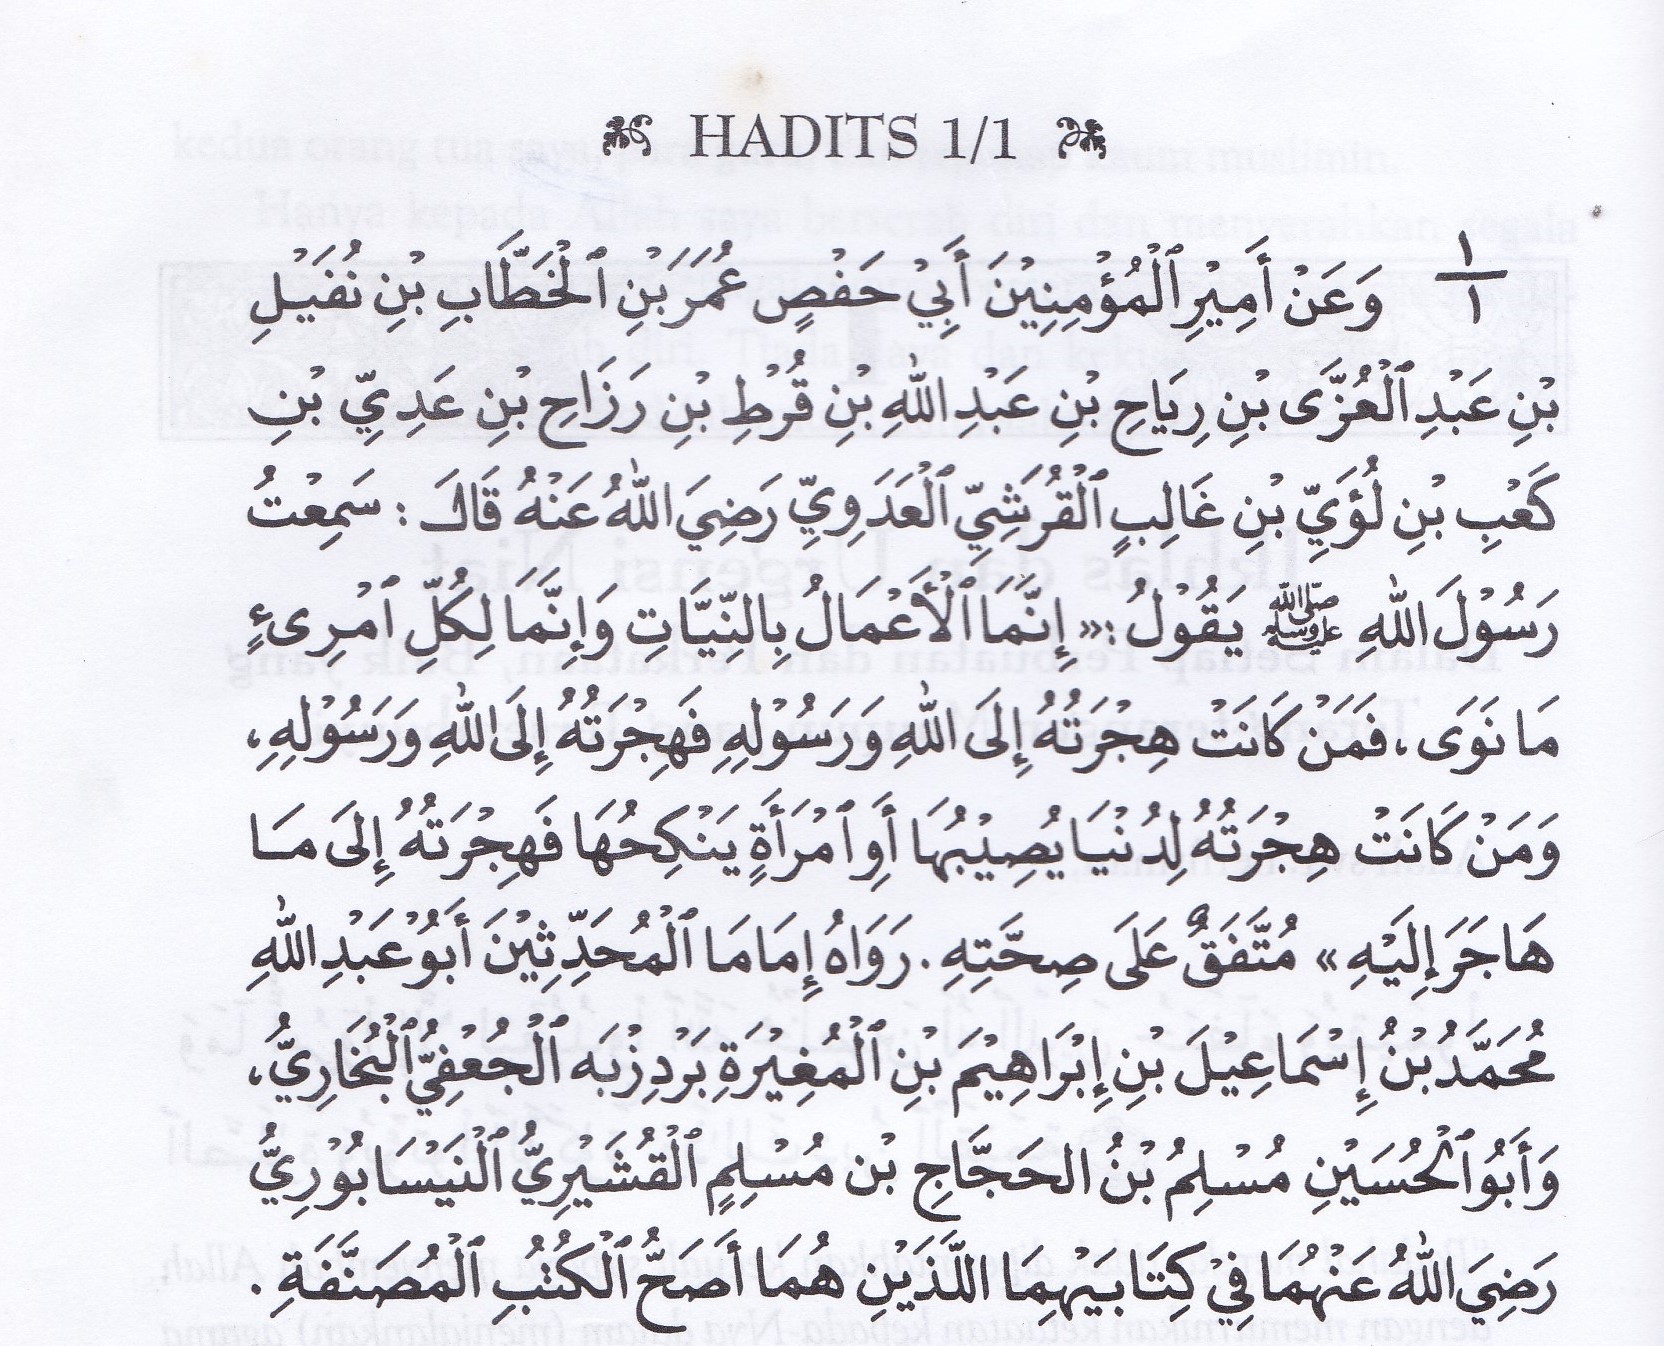 HADITS 1/1
١/١ وَعَنْ أَمِيْرِ ٱلْمُؤْمِنِيْنَ أَبِيْ حَفْصٍ عُمَرَ بْنِ ٱلْخَطَّابِ بْنِ نُفَيْلِ
بْنِ عَبْدِ ٱلْعُزَّى بْنِ رِيَاحِ بْنِ عَبْدِ اللّٰهِ بْنِ قُرْطِ بْنِ رَزَاحِ بْنِ عَدِيِّ بْنِ
كَعْبِ بْنِ لُؤَيِّ بْنِ غَالِبٍ ٱلْقُرَشِيِّ ٱلْعَدَوِيِّ رَضِيَ اللّٰهُ عَنْهُ قَالَ : سَمِعْتُ
رَسُوْلَ اللّٰهِ ﷺ يَقُوْلُ : «إِنَّمَا ٱلْأَعْمَالُ بِالنِّيَّاتِ وَإِنَّمَا لِكُلِّ ٱمْرِىءٍ
مَا نَوَى ، فَمَنْ كَانَتْ هِجْرَتُهُ إِلَى اللّٰهِ وَرَسُوْلِهِ فَهِجْرَتُهُ إِلَى اللّٰهِ وَرَسُوْلِهِ ،
وَمَنْ كَانَتْ هِجْرَتُهُ لِدُنْيَا يُصِيْبُهَا أَوِ ٱمْرَأَةٍ يَنْكِحُهَا فَهِجْرَتُهُ إِلَى مَا
هَاجَرَ إِلَيْهِ» مُتَّفَقٌ عَلَى صِحَّتِهِ . رَوَاهُ إِمَامَا ٱلْمُحَدِّثِيْنَ أَبُوْ عَبْدِ اللّٰهِ
مُحَمَّدُ بْنُ إِسْمَاعِيْلَ بْنِ إِبْرَاهِيْمَ بْنِ ٱلْمُغِيْرَةِ بَرْدِزْبَه ٱلْجُعْفِيُّ ٱلْبُخَارِيُّ ،
وَأَبُو ٱلْحُسَيْنِ مُسْلِمُ بْنُ الحَجَّاجِ بْنِ مُسْلِمٍ ٱلْقُشَيْرِيُّ ٱلْنَيْسَابُوْرِيُّ
رَضِيَ اللّٰهُ عَنْهُمَا فِيْ كِتَابَيْهِمَا اللَّذَيْنِ هُمَا أَصَحُّ ٱلْكُتُبِ ٱلْمُصَنَّفَةِ .